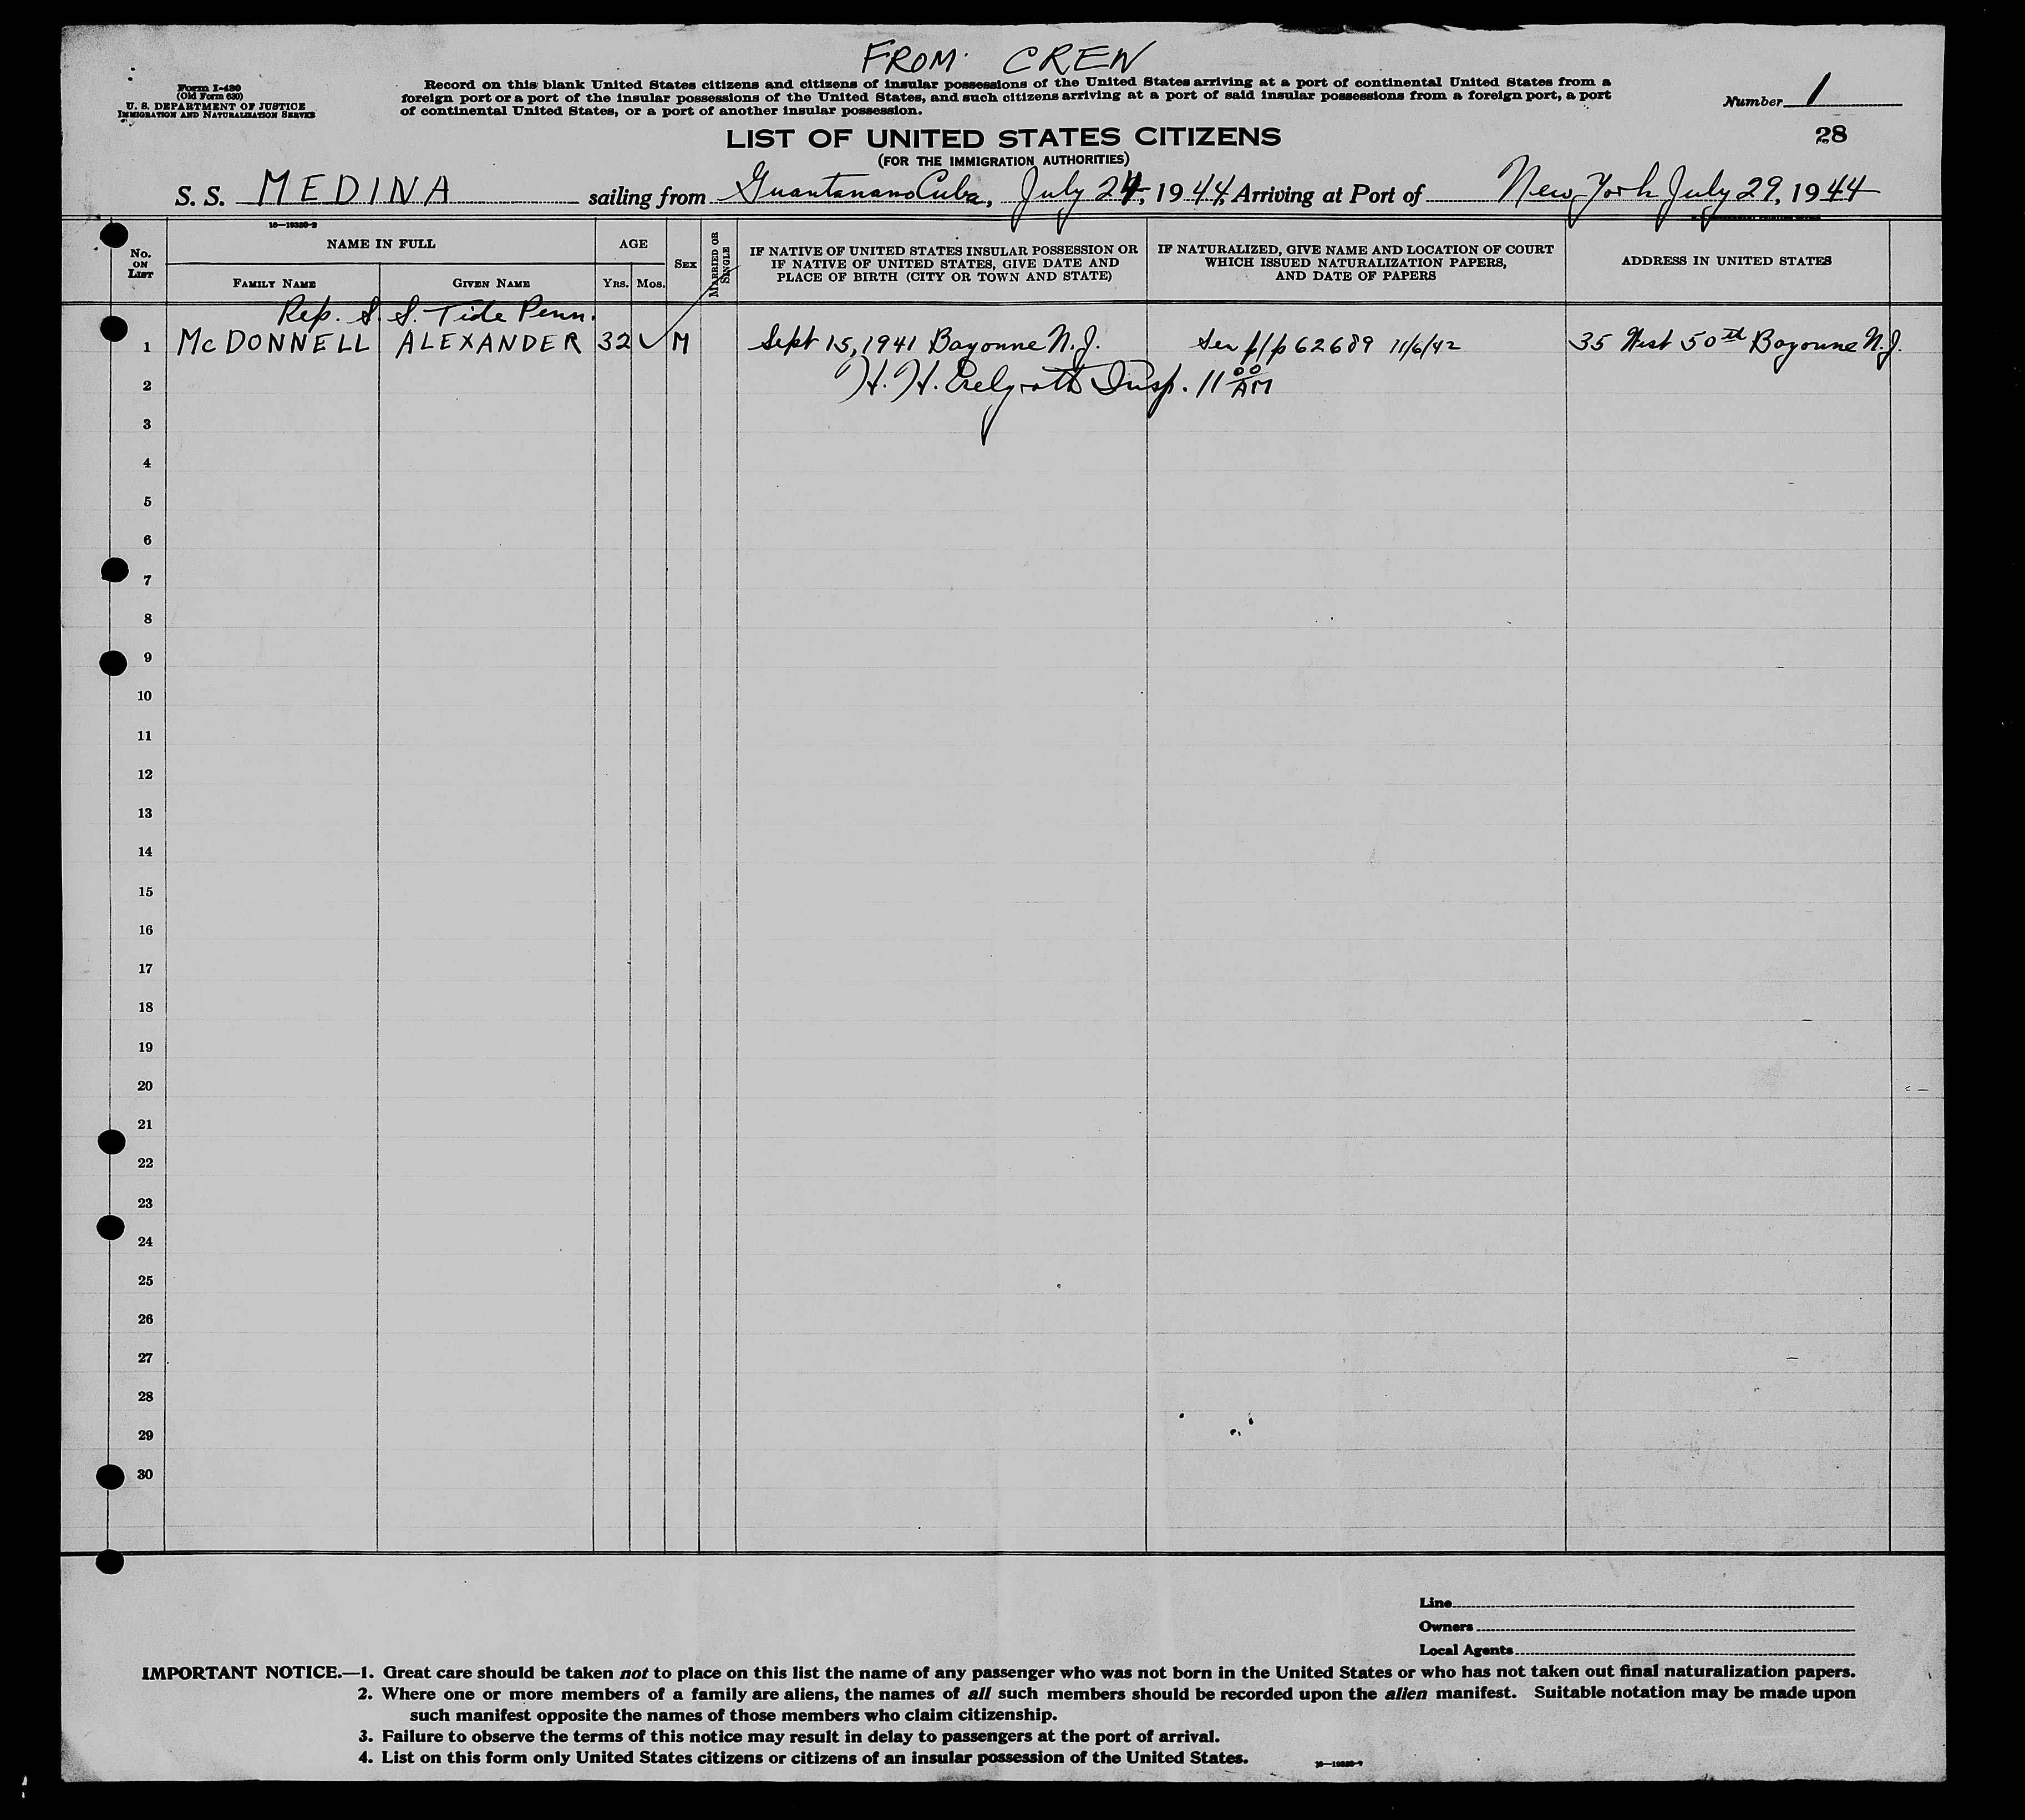 FROM CREW
Form I-480
(Old Form 630)
U. S. DEPARTMENT OF JUSTICE
IMMIGRATION AND NATURALIZATION SERVICE
Record on this blank United States citizens and citizens of insular possessions of the United States arriving at a port of continental United States from a
foreign port or a port of the insular possessions of the United States, and such citizens arriving at a port of said insular possessions from a foreign port, a port
of continental United States, or a port of another insular possession.
Number 1
LIST OF UNITED STATES CITIZENS
28
(FOR THE IMMIGRATION AUTHORITIES)
S. S. MEDINA sailing from Guantanamo Cuba, July 24, 1944, Arriving at Port of New York July 29, 1944
16—19330-2
No. ON LIST
NAME IN FULL
FAMILY NAME
GIVEN NAME
AGE
YRS.
MOS.
SEX
MARRIED OR SINGLE
IF NATIVE OF UNITED STATES INSULAR POSSESSION OR
IF NATIVE OF UNITED STATES, GIVE DATE AND
PLACE OF BIRTH (CITY OR TOWN AND STATE)
IF NATURALIZED, GIVE NAME AND LOCATION OF COURT
WHICH ISSUED NATURALIZATION PAPERS,
AND DATE OF PAPERS
ADDRESS IN UNITED STATES
Rep. S. S. Tide Penn.
1 McDONNELL ALEXANDER 32 M Sept 15, 1941 Bayonne N.J. Sea p/p 62689 11/6/42 35 West 50th Bayonne N.J.
2 H. H. Insp. 11 00 AM
3
4
5
6
7
8
9
10
11
12
13
14
15
16
17
18
19
20
21
22
23
24
25
26
27
28
29
30
Line
Owners
Local Agents
IMPORTANT NOTICE.—1. Great care should be taken not to place on this list the name of any passenger who was not born in the United States or who has not taken out final naturalization papers.
2. Where one or more members of a family are aliens, the names of all such members should be recorded upon the alien manifest. Suitable notation may be made upon
such manifest opposite the names of those members who claim citizenship.
3. Failure to observe the terms of this notice may result in delay to passengers at the port of arrival.
4. List on this form only United States citizens or citizens of an insular possession of the United States.